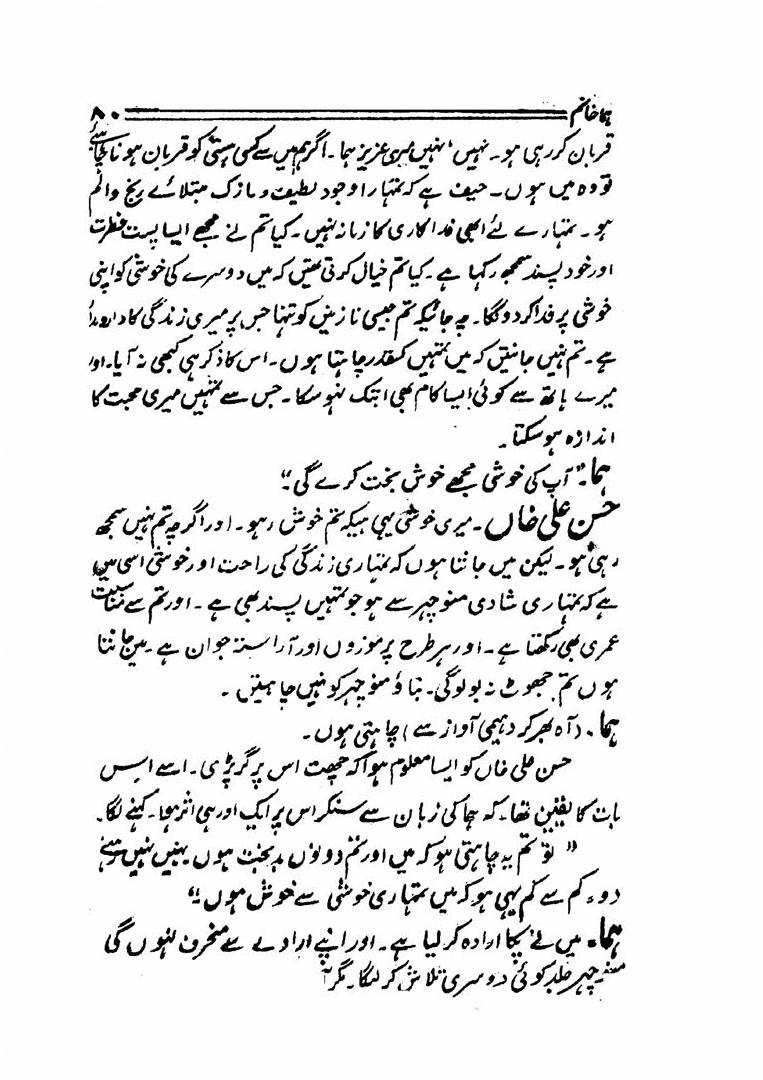 ہما خانم ۸۰
قربان کر رہی ہو۔ نہیں' نہیں میری عزیز ہما۔ اگر ہم میں سے کسی ہستی کو قربان ہونا چاہئے
تو وہ میں ہوں۔ حیف ہے کہ تمہارا وجود لطیف و نازک مبتلائے رنج والم
ہو۔ تمہارے لئے ابھی فداکاری کا زمانہ نہیں۔ کیا تم نے مجھے ایسا پست فطرت
اور خود پسند سمجھ رکہا ہے۔ کیا تم خیال کرتی تھیں کہ میں دوسرے کی خوشی کو اپنی
خوشی پر فدا کر دونگا۔ چہ جائیکہ تم جیسی نازنین کو تنہا جس پر میری زندگی کا دارومدار
ہے۔ تم نہیں جانتیں کہ میں تمہیں کسقدر چاہتا ہوں۔ اس کا ذکر ہی کبھی نہ آیا۔ اور
میرے ہاتھ سے کوئی ایسا کام بھی ابتک نہوسکا۔ جس سے تمہیں میری محبت کا
اندازہ ہو سکتا۔
ہما۔ "آپ کی خوشی مجھے خوش بخت کرے گی"
حسن علی خاں۔ میری خوشی یہی ہیکہ تم خوش رہو۔ اور اگرچہ تم نہیں سمجھ
رہی ہو۔ لیکن میں جانتا ہوں کہ تمہاری زندگی کی راحت اور خوشی اسی میں
ہے کہ تمہاری شادی منوچہر سے ہو جو تمہیں پسند بھی ہے۔ اور تم سے مناسبت
عمری بھی رکھتا ہے۔ اور ہر طرح پر موزوں اور آراستہ جوان ہے۔ میں جانتا
ہوں تم جھوٹ نہ بولوگی۔ بتاؤ منوچہر کو نہیں چاہتیں۔
ہما۔ (آہ بھر کر دہیمی آواز سے) چاہتی ہوں۔
حسن علی خاں کو ایسا معلوم ہوا کہ چھت اس پر گر پڑی۔ اسے اس
بات کا یقین تھا۔ کہ ہما کی زبان سے سنکر اس پر ایک اور ہی اثر ہوا۔ کہنے لگا۔
"تو تم یہ چاہتی ہو کہ میں اور تم دونوں بدبخت ہوں نہیں نہیں رہنے
دو۔ کم سے کم یہی ہو کہ میں تمہاری خوشی سے خوش ہوں"
ہما۔ میں نے پکا ارادہ کر لیا ہے۔ اور اپنے ارادے سے منحرف نہوں گی
منوچہر جلد کوئی دوسری تلاش کر لیگا۔ مگر آ